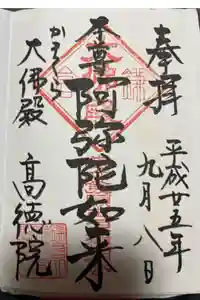 奉拝
平成廿五年
九月八日
本尊
阿弥陀如来
かまくら
大佛殿
高徳院